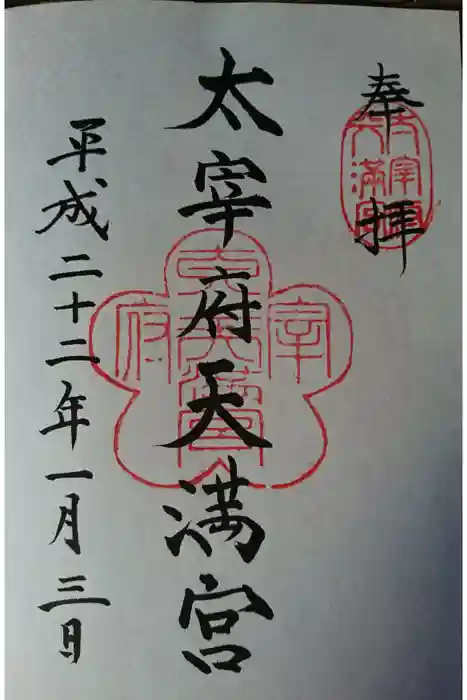 奉拝
太宰府天満宮
平成二十二年一月三日